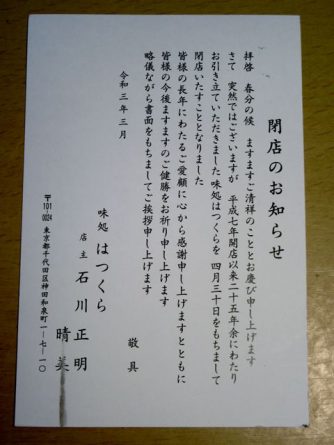 閉店のお知らせ
拝啓　春分の候　ますますご清祥のこととお慶び申し上げます
さて　突然ではございますが　平成七年開店以来二十五年余にわたり
お引き立ていただきました味処はつくらを　四月三十日をもちまして
閉店いたすこととなりました
皆様の長年にわたるご愛顧に心から感謝申し上げますとともに
皆様の今後ますますのご健勝をお祈り申し上げます
略儀ながら書面をもちましてご挨拶申し上げます
敬具
令和三年三月
味処　はつくら
店主　石川正明
晴美
〒101-0024　東京都千代田区神田和泉町一ー七ー一〇